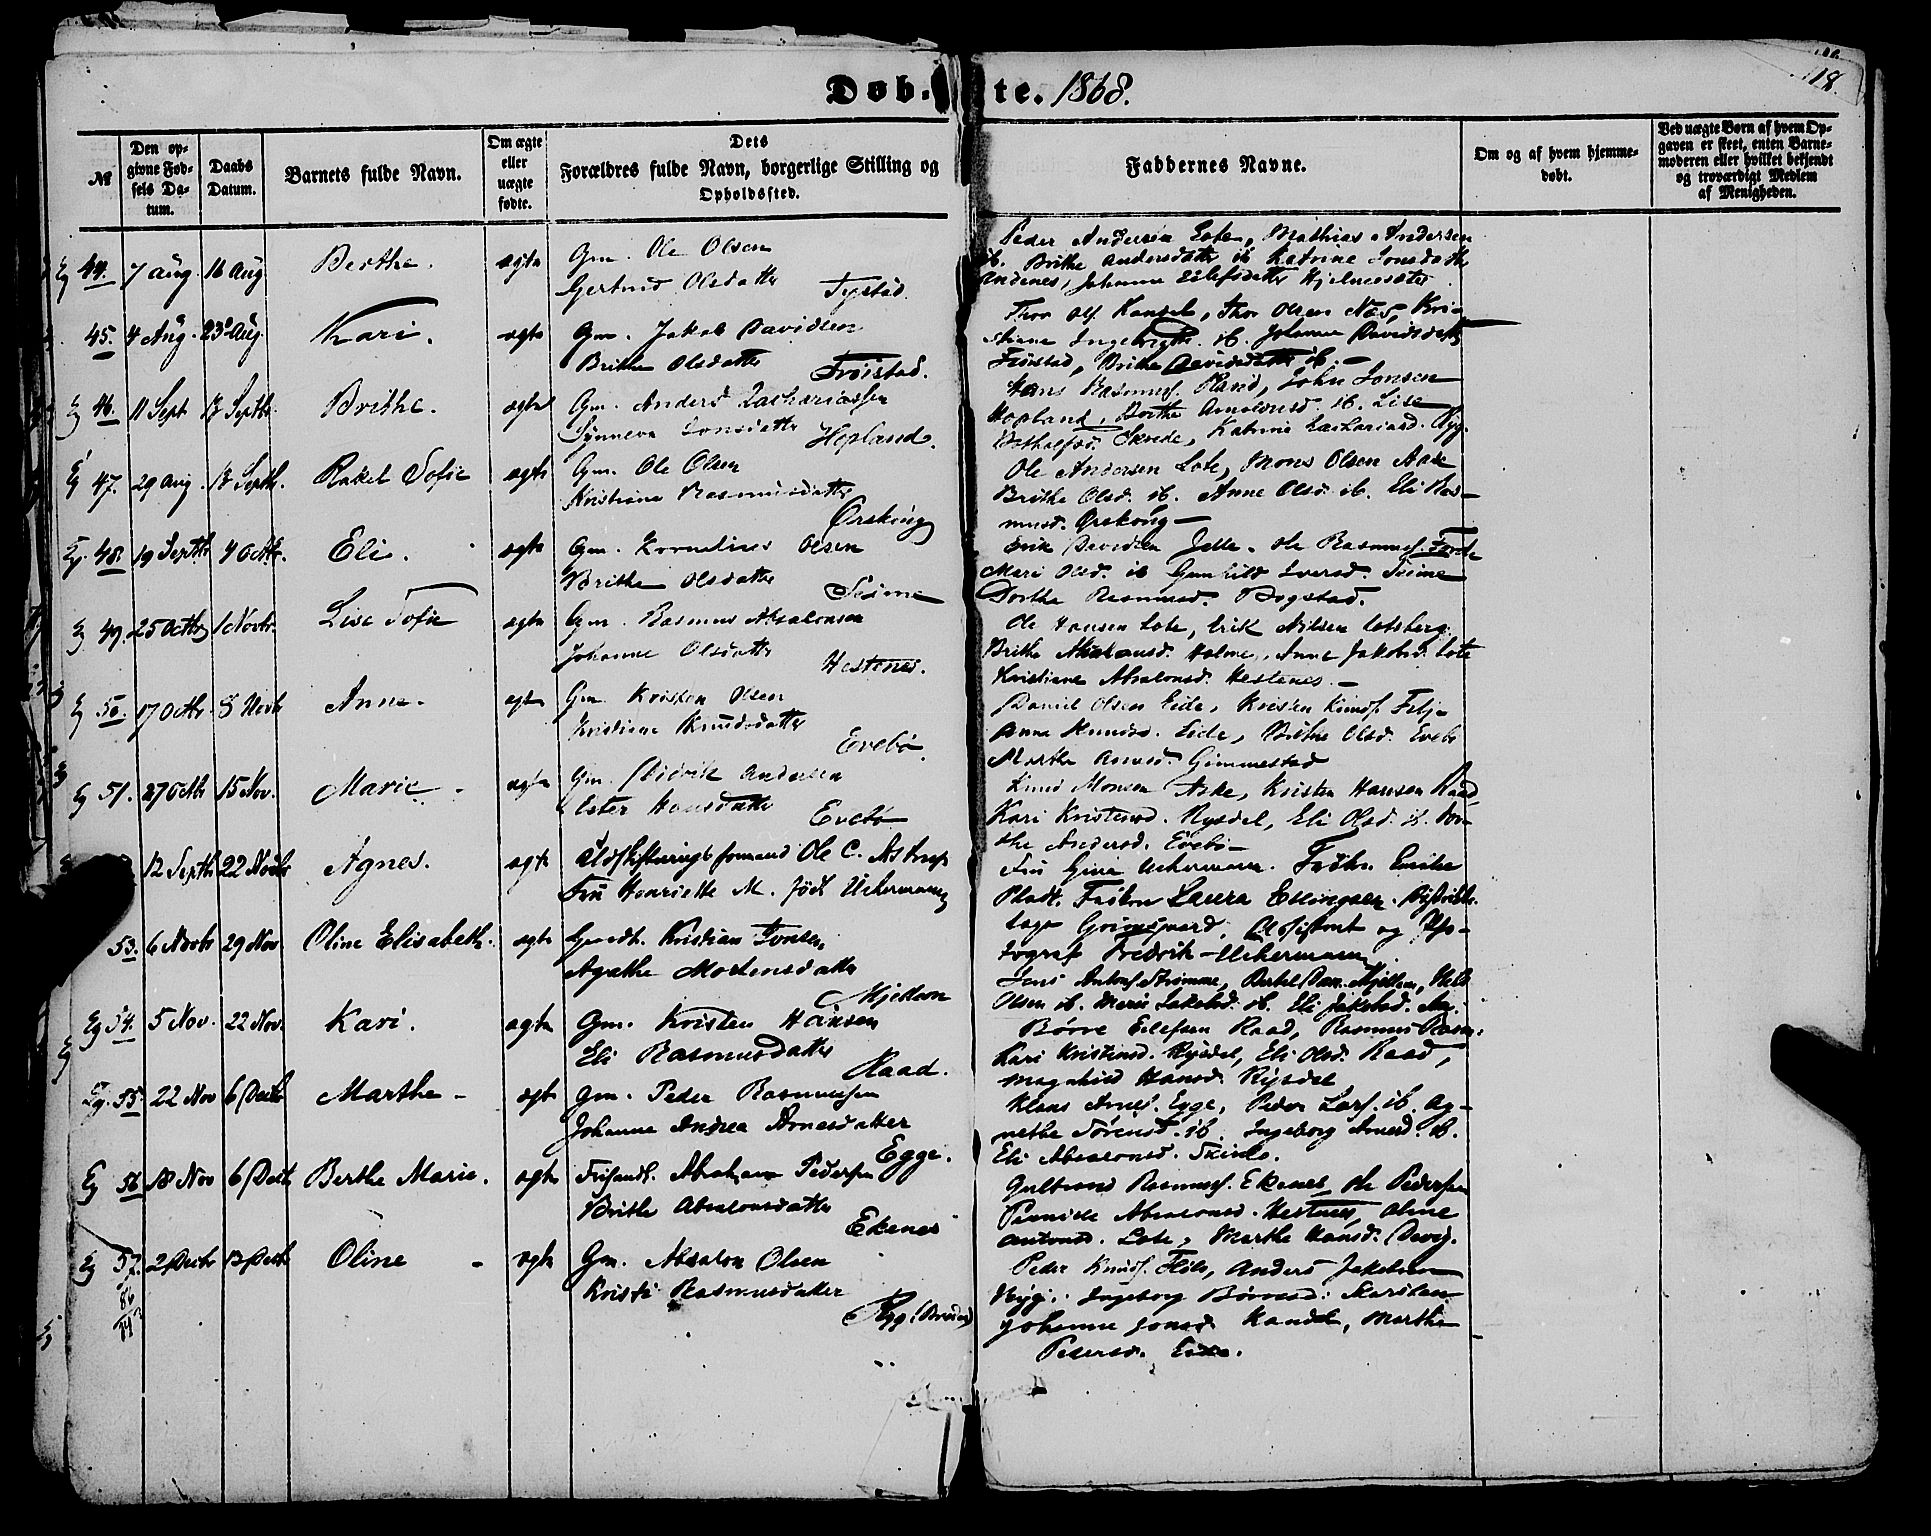 Døb-te. 1868.
118.
№
Den opgivne Fødsels Datum.
Daabs Datum.
Barnets fulde Navn.
Om ægte eller uægte fødte.
Dets Forældres fulde Navn, borgerlige Stilling og Opholdssted.
Faddernes Navne.
Om og af hvem hjemmedøbt.
Ved uægte Børn af hvem Opgaven er skeet, enten Barnemoderen eller hvilket bekjendt og troværdigt Medlem af Menigheden.
Eg 44. 7 Aug 16 Aug Berthe. ægte Gm. Ole Olsen
Gertrud Olsdatter Tystad.
Peder Andersen Lote, Mathias Andersen
ib. Brithe Andersdatter ib Katrine Jonsdatter
Andenes, Johanne Eilefsdatter Hjelmesæter
45. 4 Aug. 23 Aug. Kari. ægte Gm. Jakob Davidsen
Brithe Olsdatter Frøistad.
Thor Olsen Næs, Kri-
stiane Ingebrigts. ib. Johanne Davidsdatter
Frøistad, Brithe Davidsdatter ib. -
Eg 46. 11 Sept 13 Septbr. Brithe. ægte Gm. Anders Zachariassen
Synneva Jonsdatter Hopland.
Hans Rasmuss. John Jonsen
Hopland, Berthe ib. Lise
Skrede, Katrine Zachariasd. Ryg.
Eg 47. 29 Aug. 13 Septb. Rakel Sofie ægte Gm. Ole Olsen
Kristiane Rasmusdatter Ørskoug
Ole Andersen Lote, Mons Olsen Aase
Brithe Olsd. ib. Anne Olsd. ib. Eli Ras-
musd. Ørskoug -
Eg. 48. 19 Septbr 4 Octbr. Eli. ægte Gm. Kornelius Olsen
Brithe Olsdatter Seime
Erik Davidsen Ole Rasmuss.
Mari Olsd. ib Gunhild Iversd. Seime
Dorthe Rasmusd. Bogstad.
Eg 49. 25 Octbr 1 Novbr. Lise Sofie ægte Gm. Rasmus Absalonsen
Johanne Olsdatter Hestenes.
Ole Hansen Lote, Erik Nilsen Lotsberg
Brithe Holme, Anne Jakobsd. Lote
Kristiane Absalonsd. Hestenes. -
Eg 50. 17 Octbr. 8 Novb Anne. ægte Gm. Kristen Olsen
Kristiane Knudsdatter Evebø.
Daniel Olsen Eide, Kristen Knuds.
Anne Knudsd. Eide, Brithe Olsd. Evebø
Marthe Gimmestad
Eg 51. 27 Octbr 15 Nov. Marie. - ægte Gm. Andersen
Ester Hansdatter Evebø
Knud Monsen Aske, Kristen Hansen Raad
Kari Kristensd. Rysdel, Eli Olsd. ib. Dor-
the Andersd. Evebø -
12 Septbr 22 Novbr Agnes. ægte Udskiftningsformand Ole C. Astrup
Fru Henriette M. født Uchermann
Fru Gina Uchermann. Frøken Emilie
Frøken Laura Esslingaen. Distrikts-
læge Grimsgaard. Assistent og Pho-
tograf Fredrik Uchermann
53. 6 Novbr 29 Nov Oline Elisabeth. ægte Kristian Jonsen
Agathe Mortensdatter Mjellem
Jens Strømme, Bertel Dan. Mjellem,
Olsen ib. ib. Eli
Eg 54. 5 Nov. 22 Nov. Kari. ægte Gm. Kristen Hansen
Eli Rasmusdatter Raad.
Børre Eilefsen Raad, Rasmus
Kari Kristensd. Rysdel, Eli Olsd. Raad,
Magnhild Hansd. Rysdel
Eg. 55. 22 Nov 6 Decb Marthe - ægte Gm. Peder Rasmussen
Johanne Andrea Arnesdatter Egge.
Klaus Arnes. Egge, Peder Lars. ib. Ag-
nethe Sørensd. ib. Ingeborg Arnesd. ib.
Eli Absalonsd.
Eg 56 18 Nov 6 Decb Berthe Marie. ægte Abraham Pedersen
Brithe Absalonsdatter Ekenes
Gulbrand Rasmuss. Ekenes, Ole Pedersen
Pernille Absalonsd. Hestnes, Oline
Antonsd. Lote, Marthe Hansd. Devig.
Eg 57. 2 Decbr 13 Decb Oline - ægte Gm. Absalon Olsen
Kristi Rasmusdatter Ryg (Breim)
Peder Knuds. Anders Jakobsen
Ryg. Ingeborg Børresd.
Johanne Jonsd. Marthe
Pedersd. Eide.
86